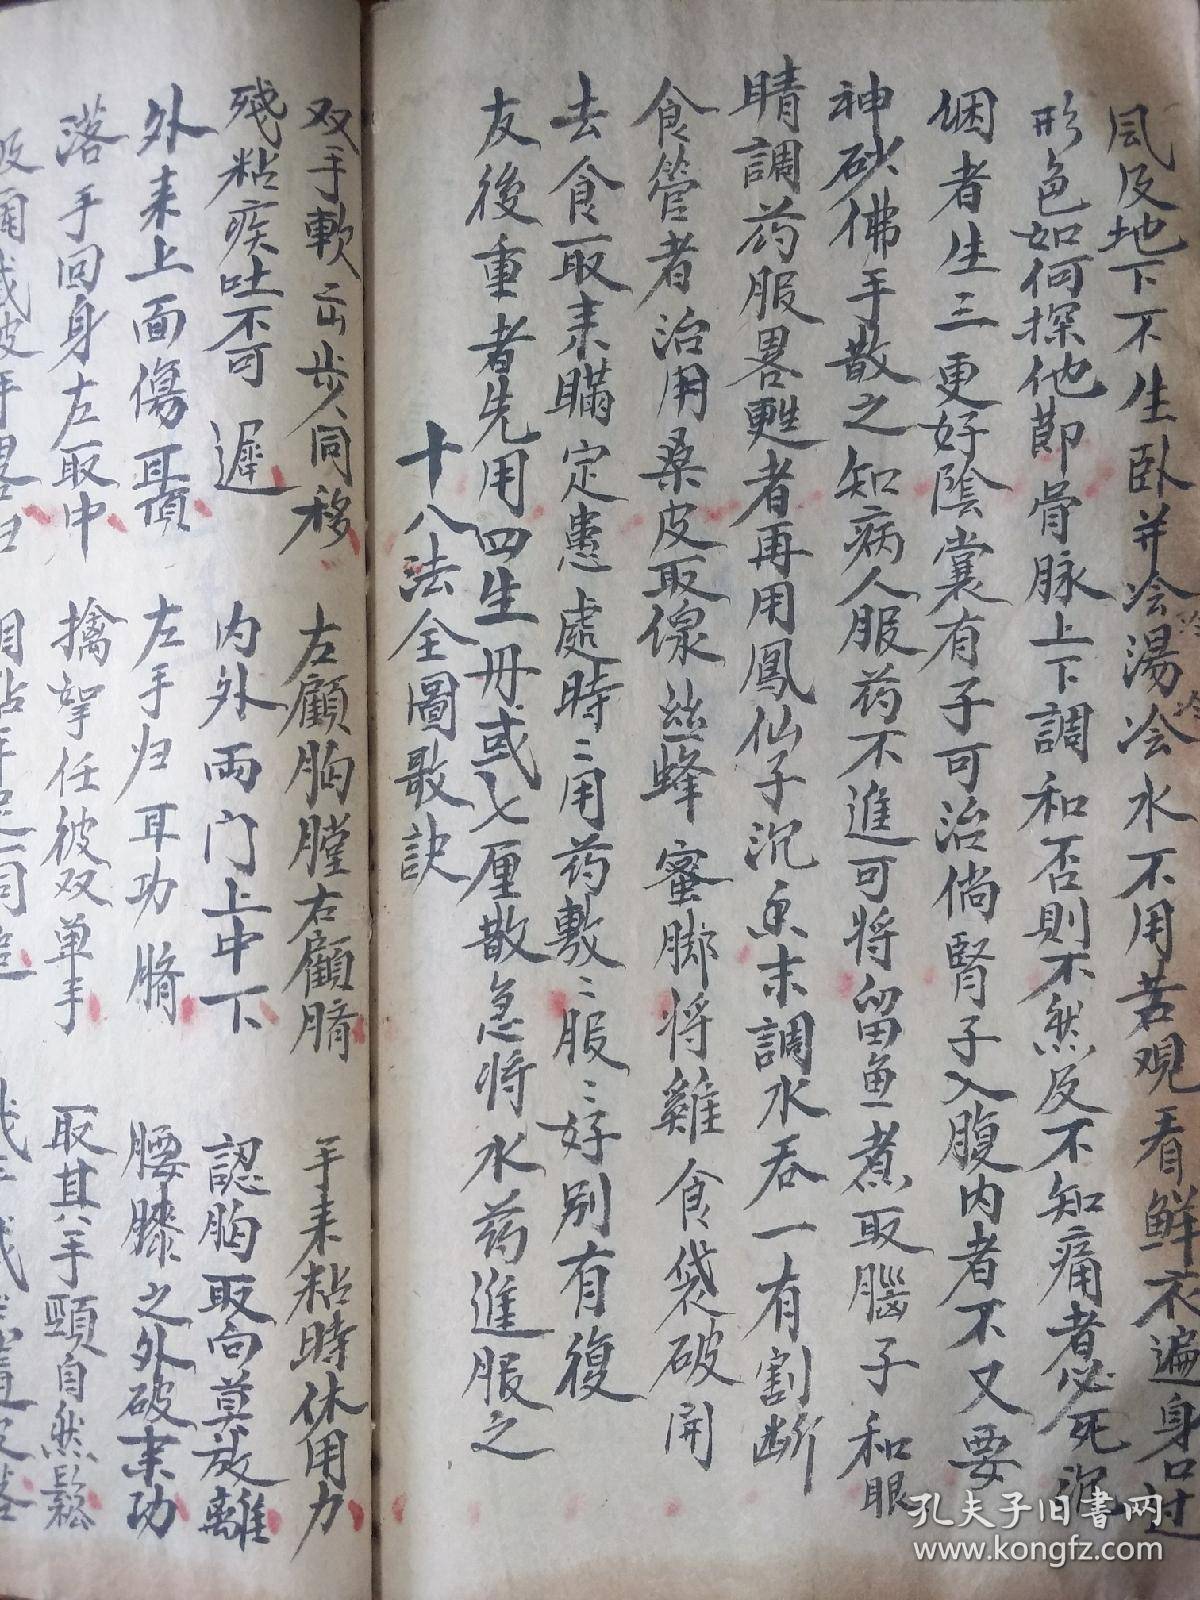 風及地下不生卧并冷湯冷水不用若观看鮮衣遍身口过
形色如何探他節骨脉上下調和否則不然及不知痛者必死沉
個者生三更好陰囊有子可治倘腎子入腹内者不又要
神砂佛手散之知病人服药不進可将留鱼煮取腦子和眼
睛調药服畧甦者再用鳳仙子沉香末調水吞一有割断
食管者治用桑皮取線丝蜂蜜脚将雞食袋破開
去食取来瞞定患處時〻用药敷〻服〻好别有復
友後重者先用四生丹或七厘散急将水药進服之
十八法全圖歌訣
双手軟出步同移 左顧胸膛右顧脩 手来粘時休用力
残粘疾吐不可遲 内外両门上中下 認胸取向莫放離
外来上面傷耳項 左手归耳功脩 腰膝之外破来功
落手回身左取中 擒拏任彼双单手 取其八手頸自然鬆